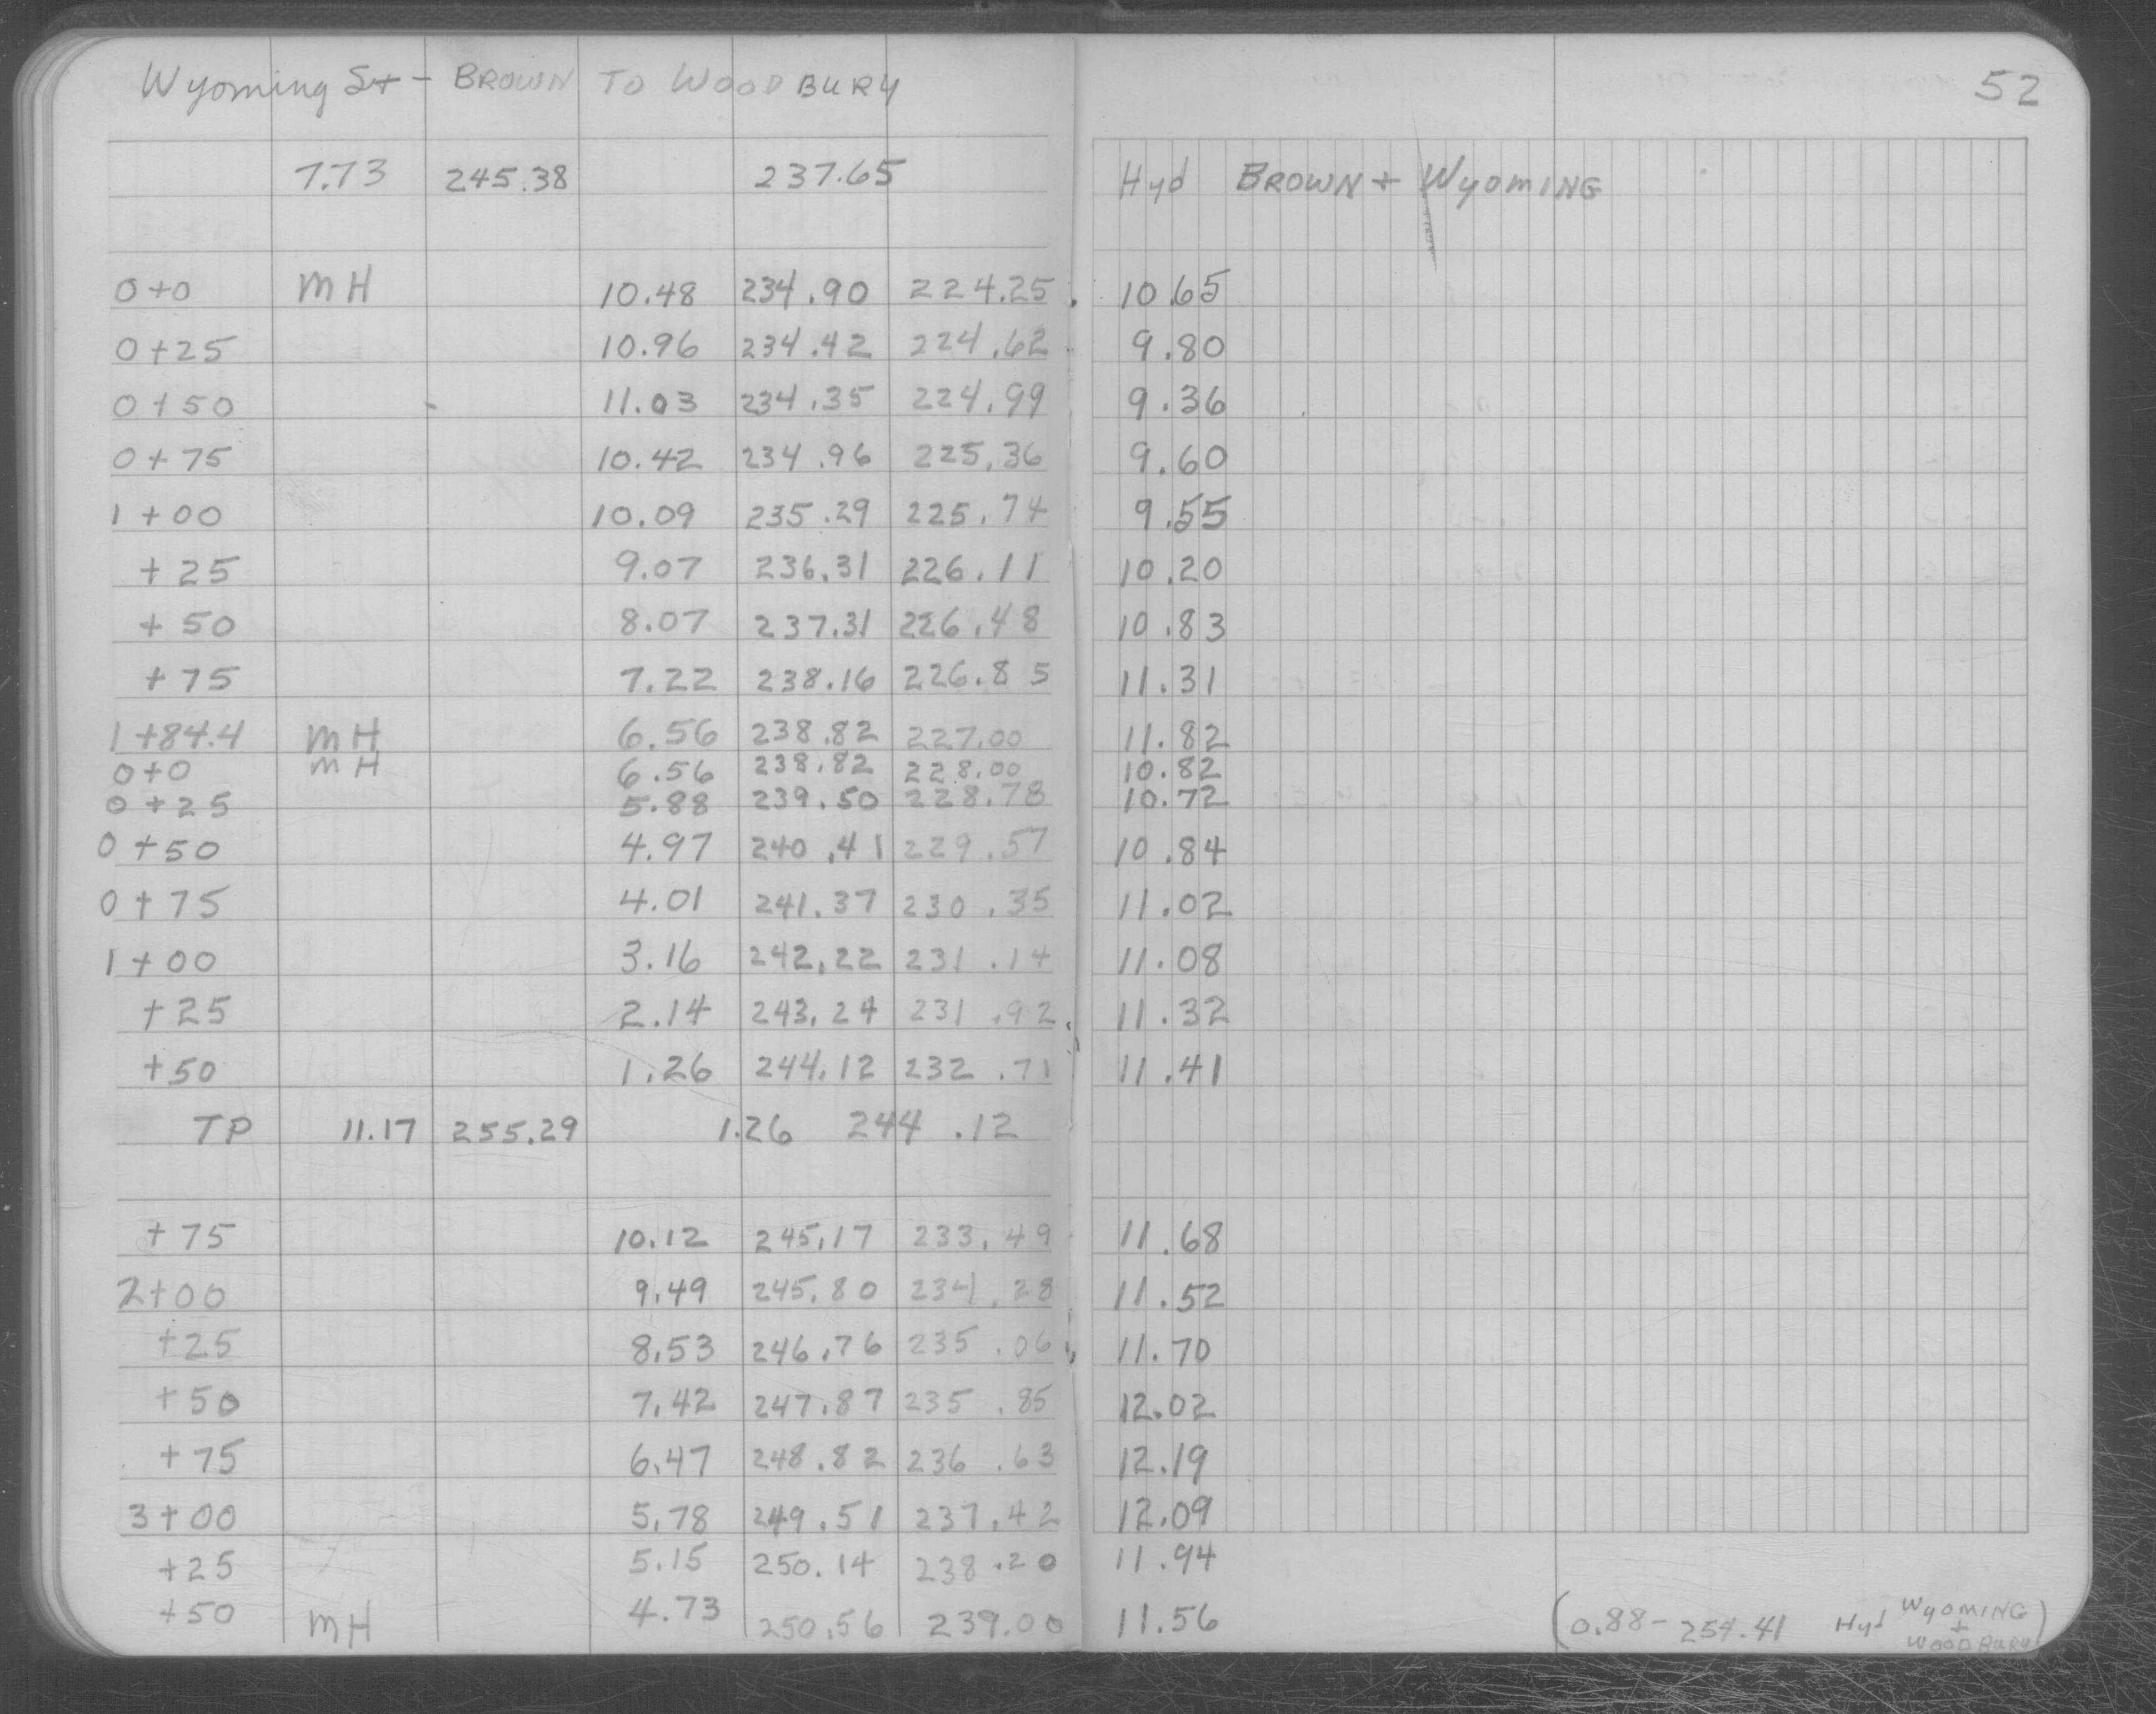 Wyoming St - BROWN TO WOODBURY
52
7.73 245.38 237.65 Hyd BROWN + WyOMING
0+0 MH 10.48 234.90 224.25 10.65
0+25 10.96 234.42 224.62 9.80
0+50 11.03 234.35 224.99 9.36
0+75 10.42 234.96 225.36 9.60
1+00 10.09 235.29 225.74 9.55
+25 9.07 236.31 226.11 10.20
+50 8.07 237.31 226.48 10.83
+75 7.22 238.16 226.85 11.31
1+84.4 MH 6.56 238.82 227.00 11.82
0+0 MH 6.56 238.82 228.00 10.82
0+25 5.88 239.50 228.78 10.72
0+50 4.97 240.41 229.57 10.84
0+75 4.01 241.37 230.35 11.02
1+00 3.16 242.22 231.14 11.08
+25 2.14 243.24 231.92 11.32
+50 1.26 244.12 232.71 11.41
TP 11.17 255.29 1.26 244.12
+75 10.12 245.17 233.49 11.68
2+00 9.49 245.80 234.28 11.52
+25 8.53 246.76 235.06 11.70
+50 7.42 247.87 235.85 12.02
+75 6.47 248.82 236.63 12.19
3+00 5.78 249.51 237.42 12.09
+25 5.15 250.14 238.20 11.94
+50 MH 4.73 250.56 239.00 11.56
(0.88 - 254.41 Hyd WyOMING + WOODBURY)